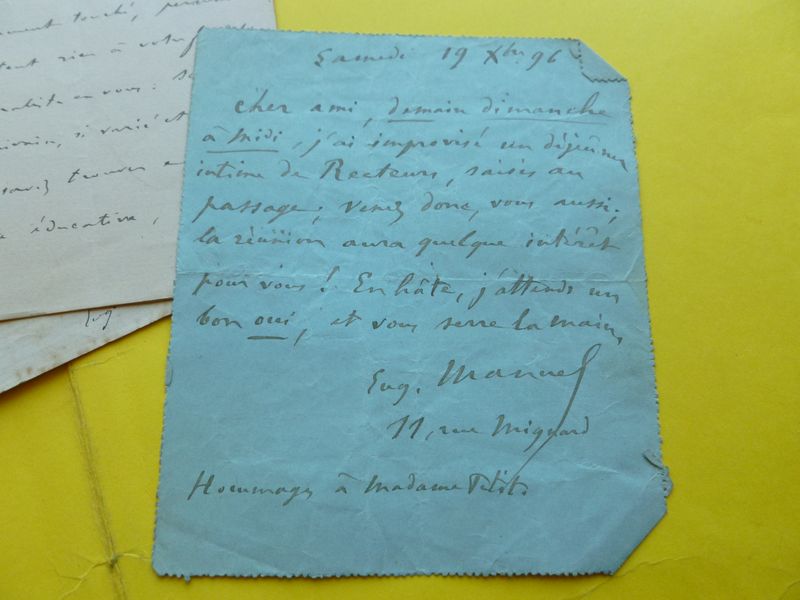 ment touché,
tent rien à votre
en vous :
si varié et
savez trouver en
éducative,
Eug
Samedi 19 Xbre 96
Cher ami, demain dimanche
à midi, j'ai improvisé un déjeuner
intime de Recteurs, saisis au
passage ; venez donc, vous aussi ;
la réunion aura quelque intérêt
pour vous ! En hâte, j'attends un
bon oui, et vous serre la main,
Eug. Manuel
11, rue Mignard
Hommages à Madame Petit.